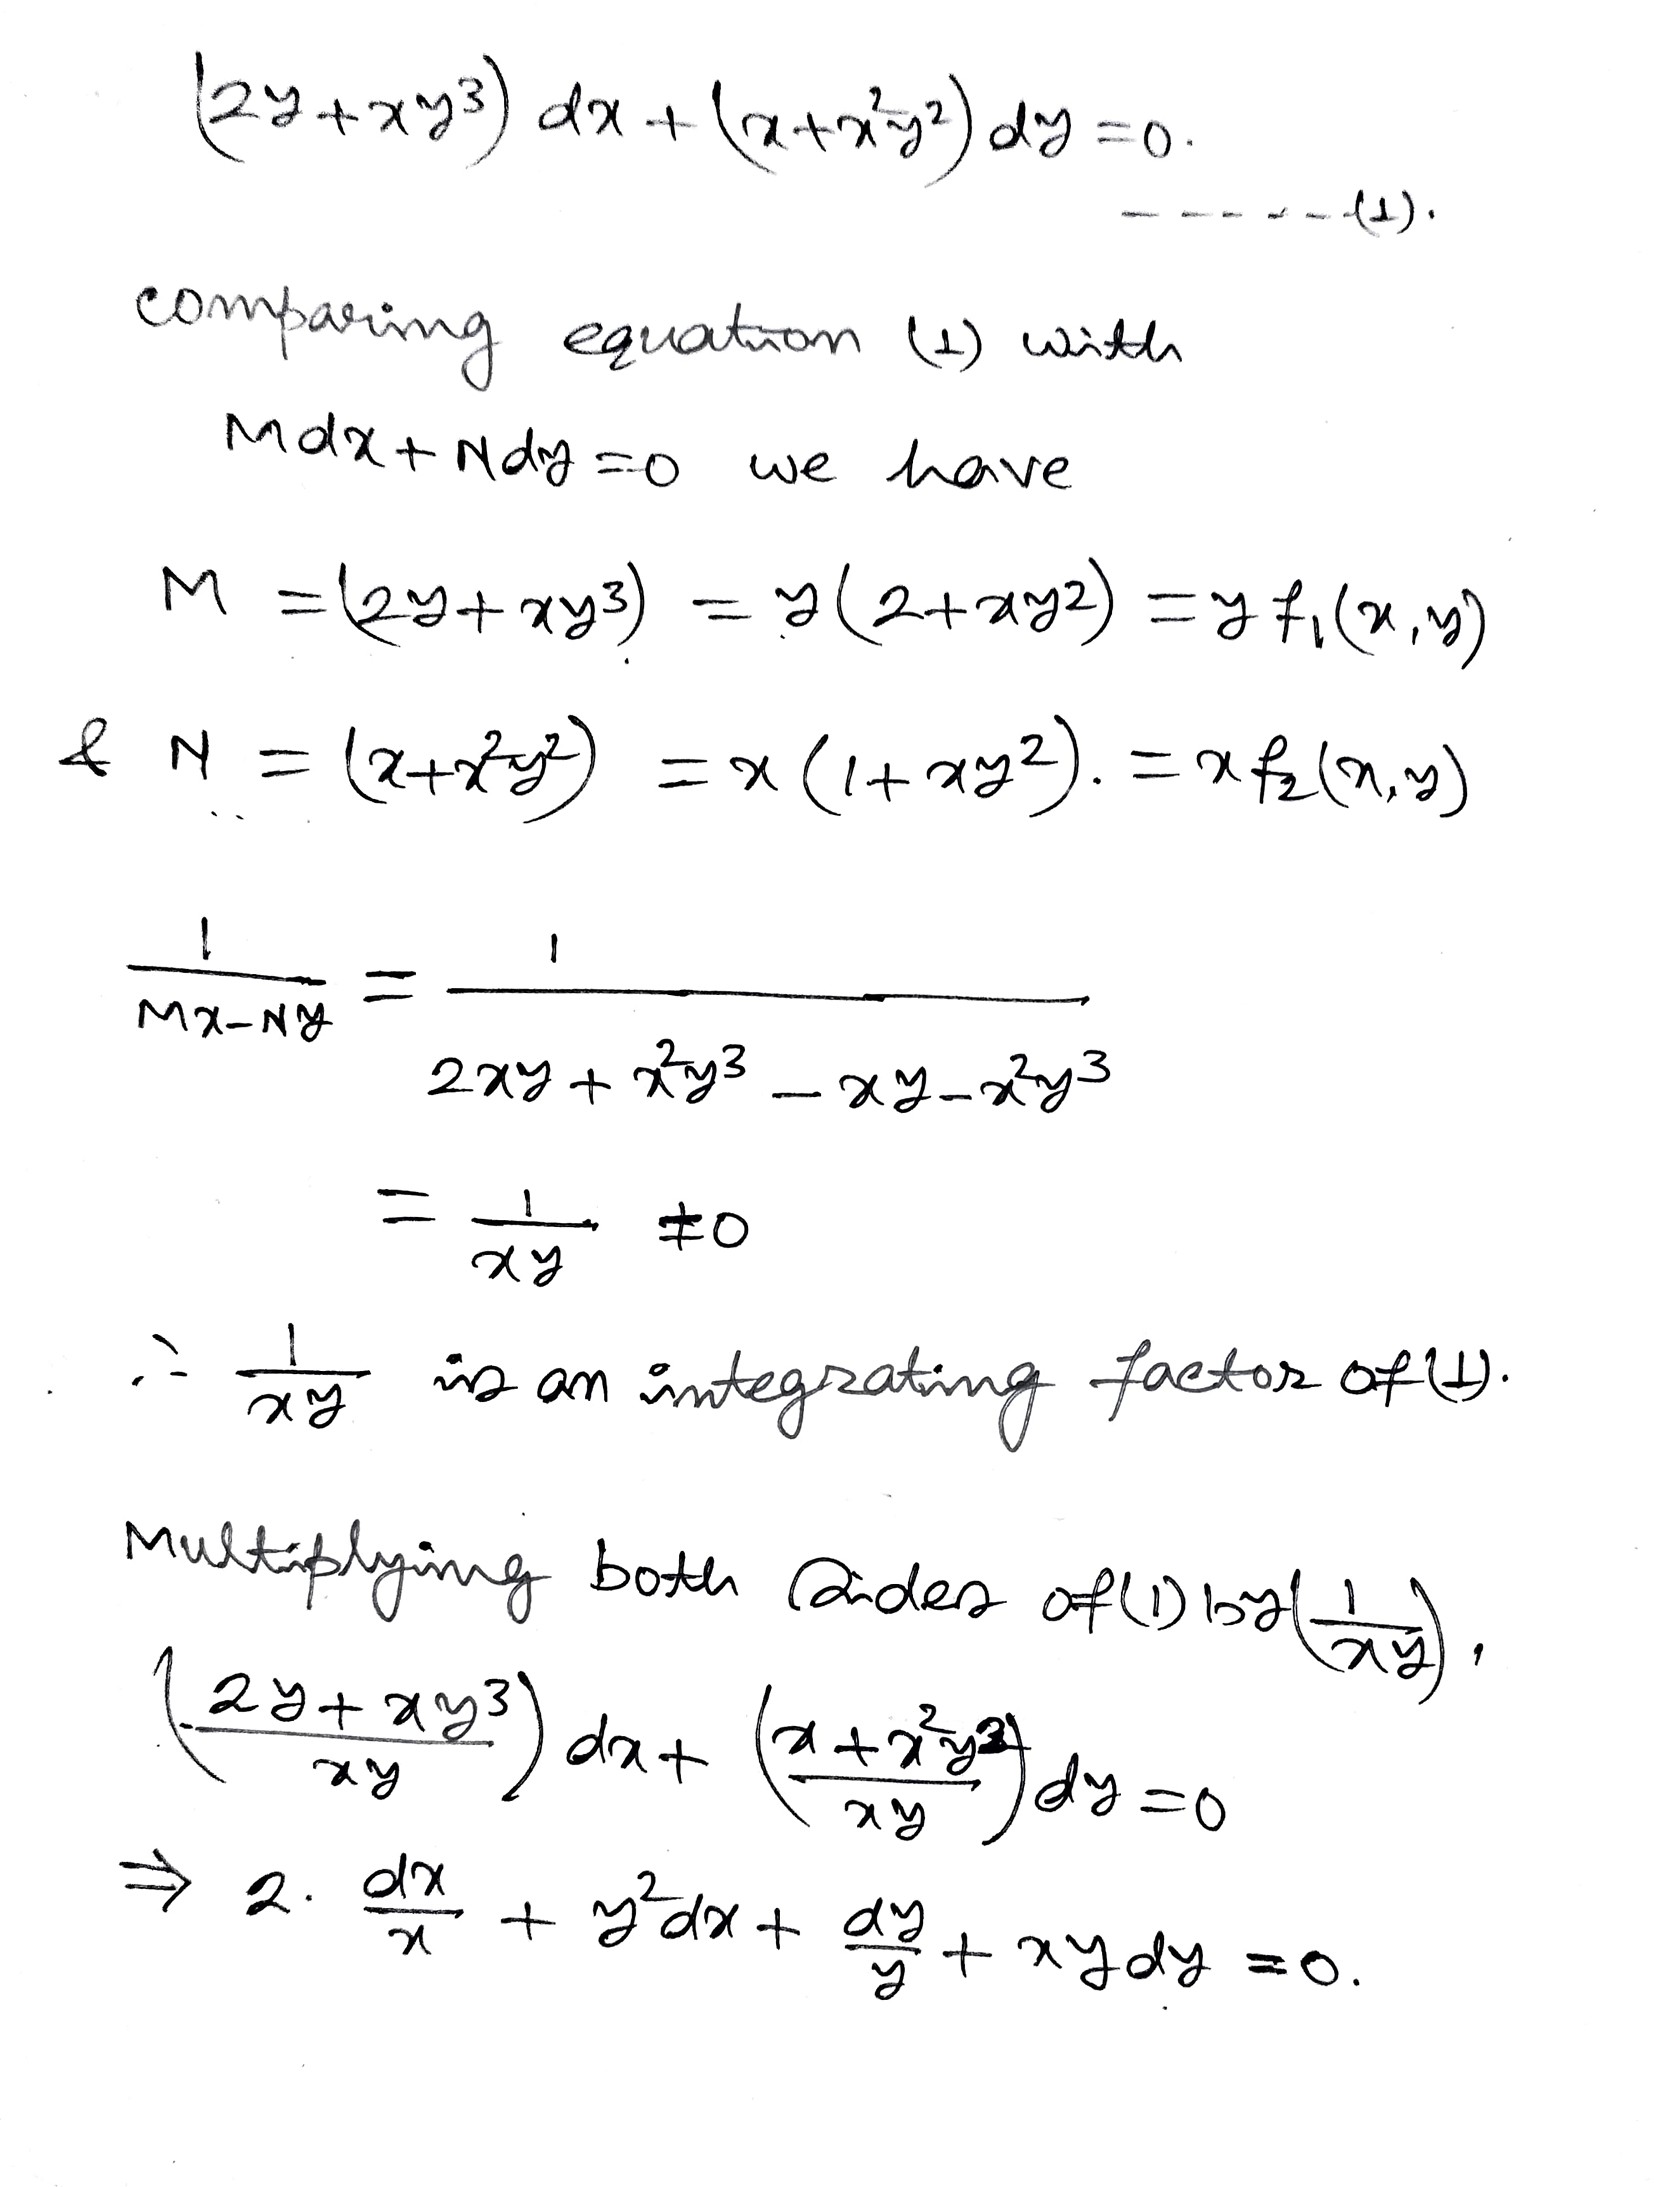 (2y+xy³) dx + (x+x²y²) dy = 0.
------(1).
comparing equation (1) with
Mdx + Ndy = 0 we have
M = (2y+xy³) = y(2+xy²) = y f₁(x,y)
& N = (x+x²y²) = x(1+xy²). = x f₂(x,y)
1/(Mx-Ny) = 1/(2xy + x²y³ - xy - x²y³)
= 1/(xy) ≠ 0
∴ 1/(xy) is an integrating factor of (1).
Multiplying both sides of (1) by (1/(xy)),
((2y+xy³)/(xy)) dx + ((x+x²y²)/(xy)) dy = 0
⇒ 2. dx/x + y²dx + dy/y + xy dy = 0.